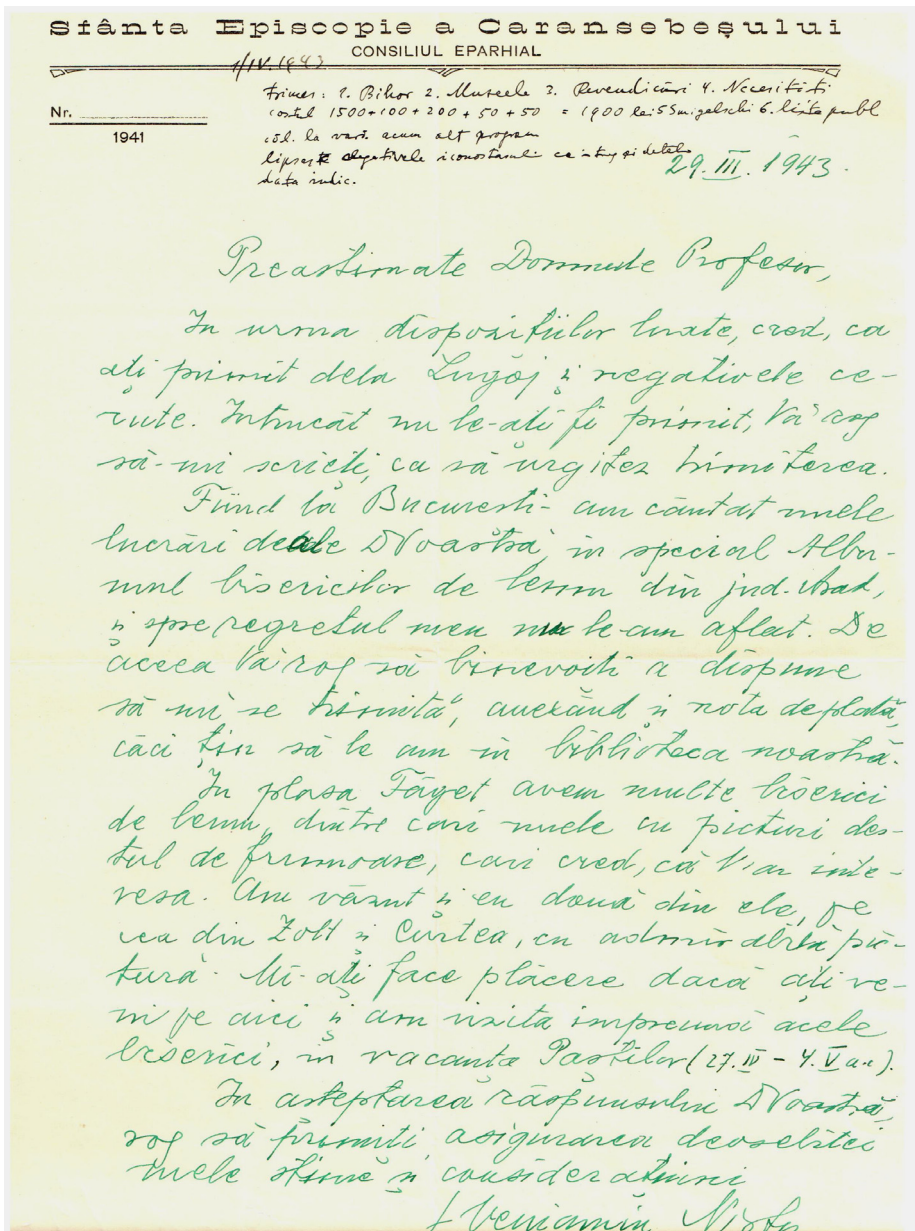 Sfânta Episcopie a Caransebeșului
CONSILIUL EPARHIAL
1/IV.1943
Trimes: 1. Bihor 2. Muzeele 3. Revendicări 4. Necesități
costul 1500+100+200+50+50 = 1900 lei 5 Smigelschi 6. lista publ
Nr.
1941
col. la vară acum alt program
lipsesc negativele iconostasului ca întreg și detalii
data indic.
29.III.1943.
Preastimate Domnule Profesor,
In urma dispozițiilor luate, cred, ca
ați primit dela Lugoj și negativele ce-
rute. Intrucât nu le-ați fi primit, Vă rog
să-mi scrieți, ca să urgitez trimiterea.
Fiind la București - am căutat unele
lucrări deale DVoastră, in special Albu-
mul bisericilor de lemn din jud. Arad,
și spre regretul meu nu le-am aflat. De
aceea Vă rog să binevoiți a dispune
să mi se trimită, anexând și nota de plată,
căci țin să le am in biblioteca noastră.
In plasa Făget avem multe biserici
de lemn, dintre cari unele cu picturi des-
tul de frumoase, cari cred, că V'ar inte-
resa. Am văzut și eu două din ele, pe
cea din Zolt și Curtea, cu admirabilă pic-
tură. Mi-ați face plăcere dacă ați ve-
ni pe aici și am vizita impreună acele
biserici, in vacanța Paștilor (27.IV – 4.V a.c.).
In așteptarea răspunsului DVoastră,
rog să primiți asigurarea deosebitei
mele stime și considerațiuni
† Veniamin Nistor